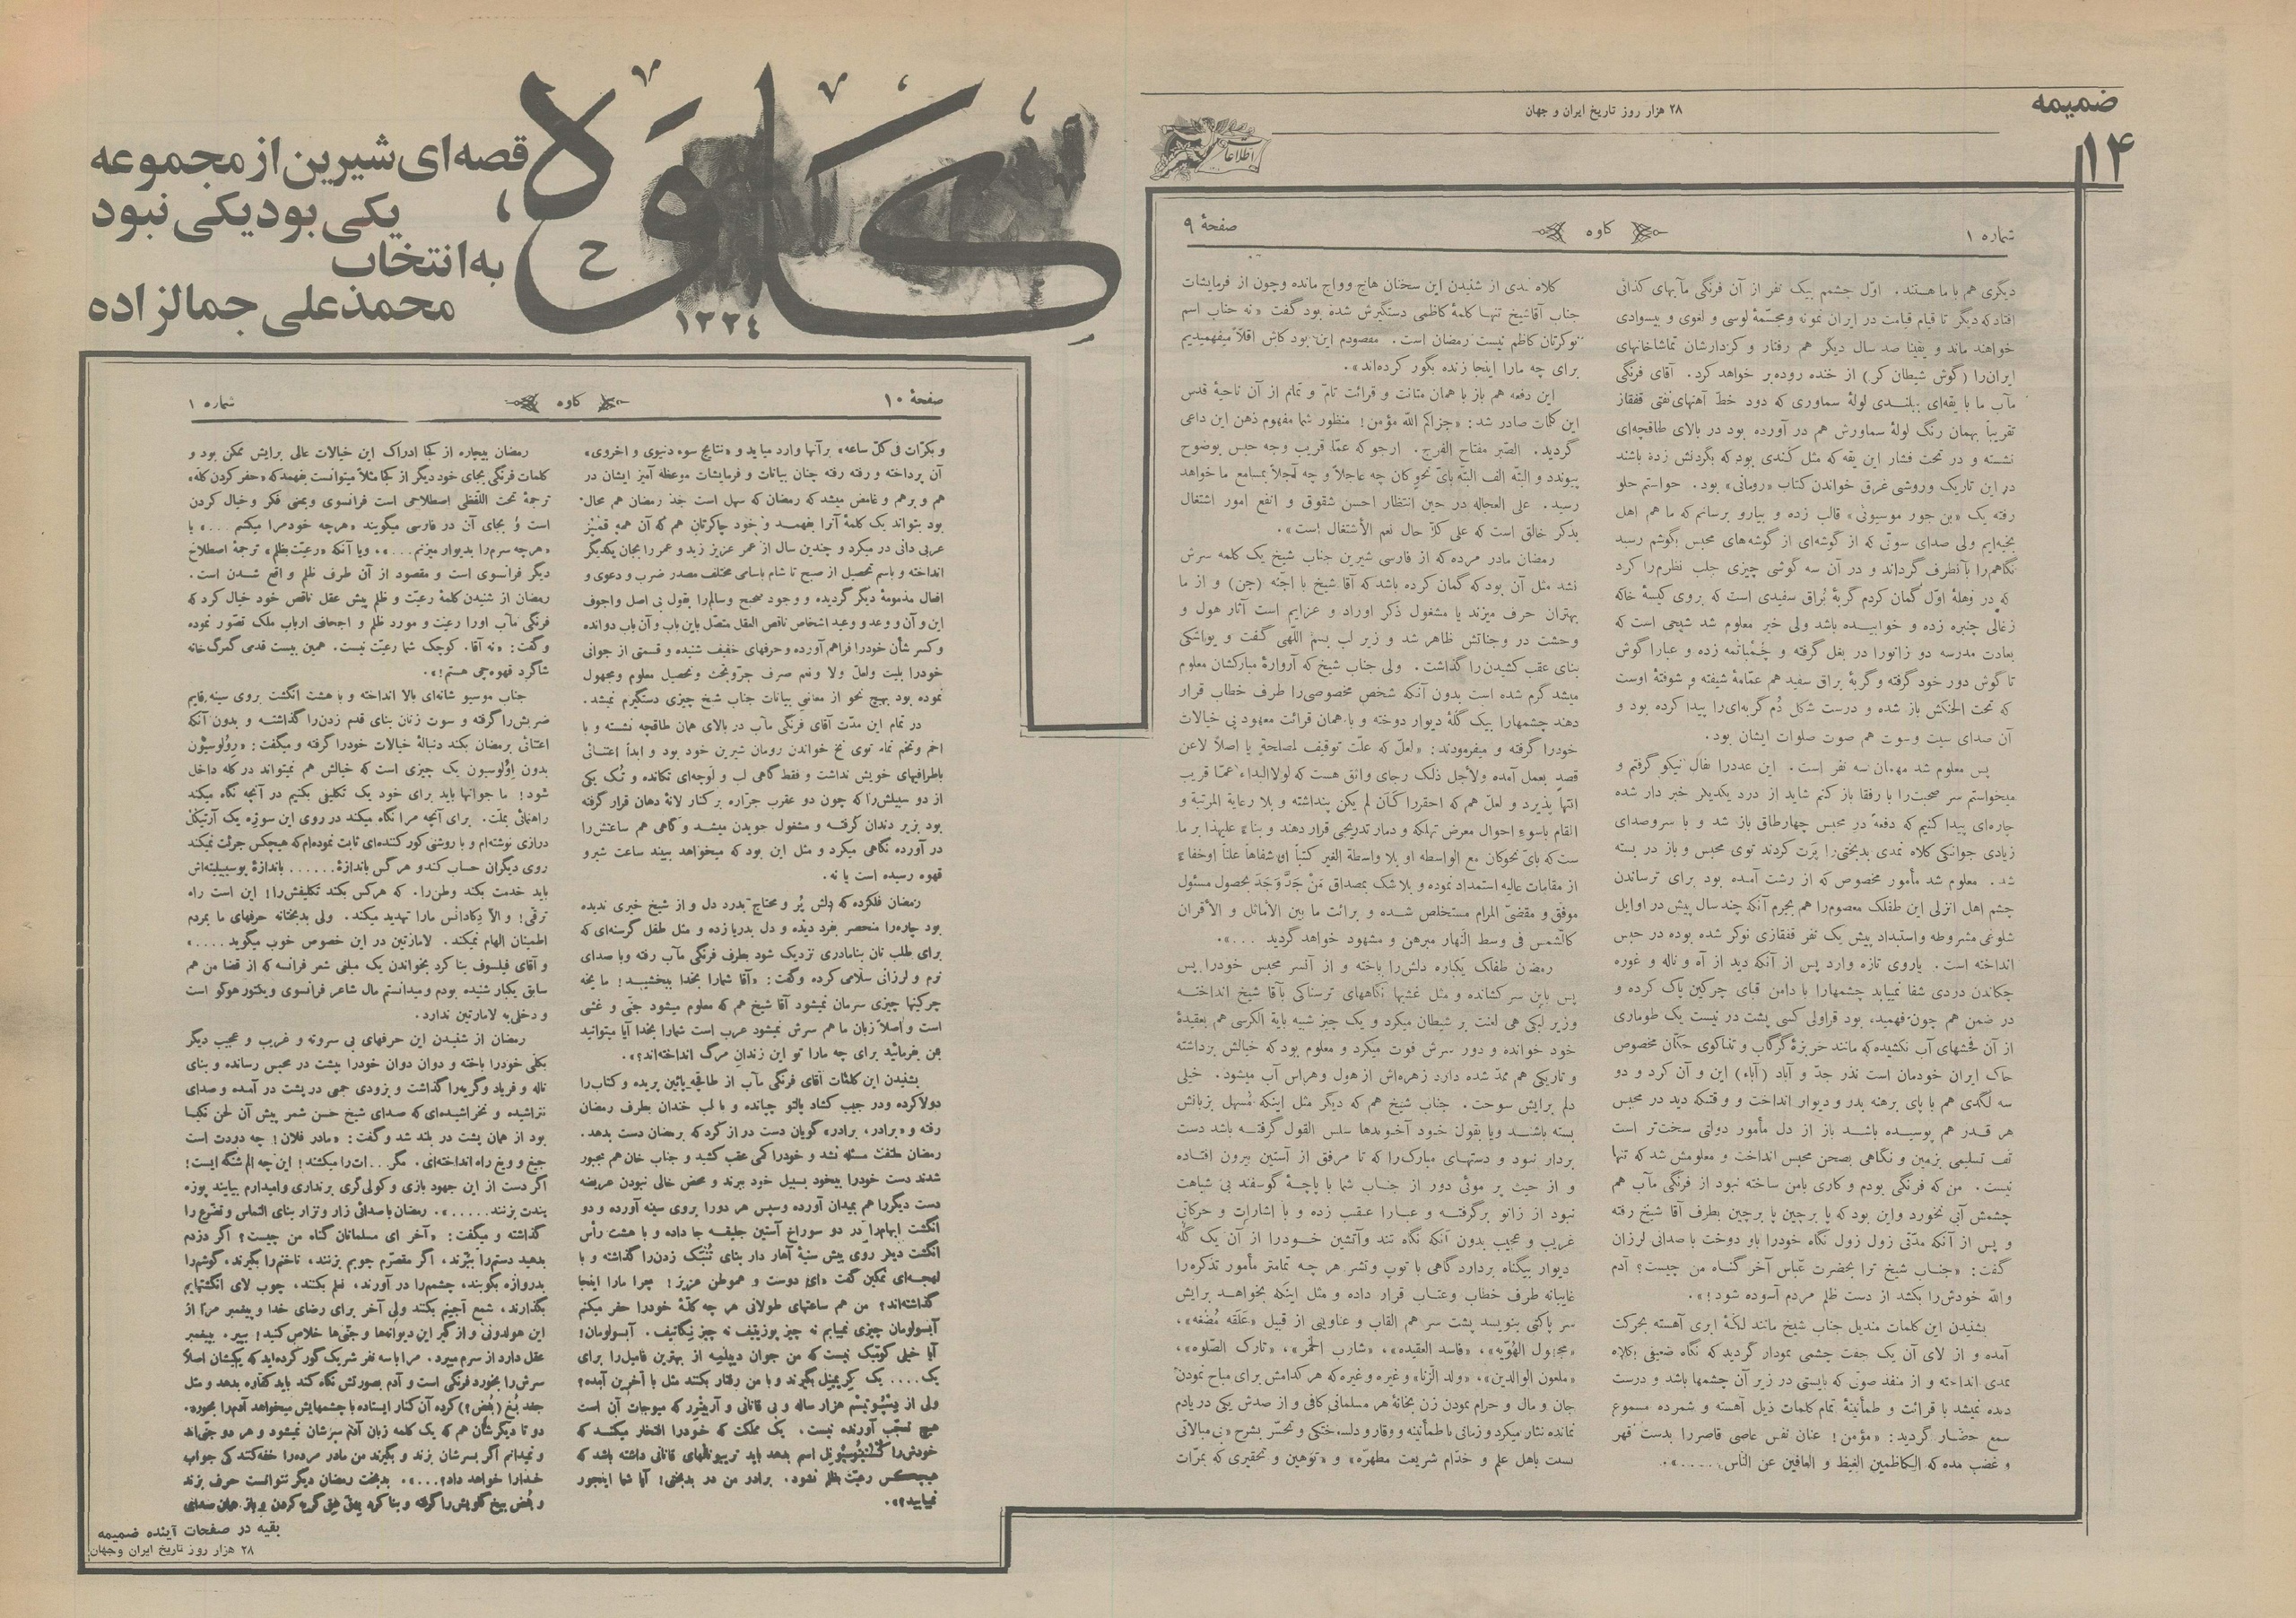 ضمیمه
۱۴
۲۸ هزار روز تاریخ ایران و جهان
اطلاعات
شماره ۱
کاوه
صفحهٔ ۹
دیگری هم با ما هستند. اوّل چشمم بیک نفر از آن فرنگی مآبهای کذائی
افتاد که دیگر تا قیام قیامت در ایران نمونه و مجسّمهٔ لوسی و لغوی و بیسوادی
خواهند ماند و یقینا صد سال دیگر هم رفتار و کردارشان تماشاخانهای
ایران‌را (گوش شیطان کر) از خنده روده‌بر خواهد کرد. آقای فرنگی
مآب ما با یقه‌ای ببلندی لولهٔ سماوری که دود خطّ آهنهای نفتی قفقاز
تقریباً بهمان رنگ لولهٔ سماورش هم در آورده بود در بالای طاقچه‌ای
نشسته و در تحت فشار این یقه که مثل کُندی بود که بگردنش زده باشند
در این تاریک و روشنی غرق خواندن کتاب «رومانی» بود. خواستم جلو
رفته یک «بن جور موسیوئی» قالب زده و بیارو برسانم که ما هم اهل
بخیه‌ایم ولی صدای سوتی که از گوشه‌ای از گوشه‌های محبس بگوشم رسید
نگاهم‌را بآنطرف گرداند و در آن سه گوشی چیزی جلب نظرم‌را کرد
که در وهلهٔ اوّل گمان کردم گربهٔ بُراق سفیدی است که بر روی کیسهٔ خاکه
زغالی چنبره زده و خوابیده باشد ولی خیر معلوم شد شیخی است که
بعادت مدرسه دو زانورا در بغل گرفته و چُمباتمه زده و عبارا گوش
تا گوش دور خود گرفته و گربهٔ براق سفید هم عمّامهٔ شیفته و شوفتهٔ اوست
که تحت الحنکش باز شده و درست شکل دُم گربه‌ای‌را پیدا کرده بود و
آن صدای سیت و سوت هم صوت صلوات ایشان بود.
پس معلوم شد مهمان سه نفر است. این عددرا بفال نیکو گرفتم و
میخواستم سر صحبت‌را با رفقا باز کنم شاید از درد یکدیگر خبر دار شده
چاره‌ای پیدا کنیم که دفعةً در محبس چهارطاق باز شد و با سروصدای
زیادی جوانکی کلاه نمدی بدبختی‌را پرت کردند توی محبس و باز در بسته
شد. معلوم شد مأمور مخصوص که از رشت آمده بود برای ترساندن
چشم اهل انزلی این طفلک معصوم‌را هم بجرم آنکه چند سال پیش در اوایل
شلوغی مشروطه و استبداد پیش یک نفر قفقازی نوکر شده بوده در حبس
انداخته است. یاروی تازه وارد پس از آنکه دید از آه و ناله و غوره
چکاندن دردی شفا نمییابد چشمهارا با دامن قبای چرکین پاک کرده و
در ضمن هم چون فهمیده بود قراولی کسی پشت در نیست یک طوماری
از آن فحشهای آب نکشیده که مانند خربزهٔ گرگاب و تنباکوی حکّان مخصوص
خاک ایران خودمان است نذر جدّ و آباد (آباء) این و آن کرد و دو
سه لگدی هم با پای برهنه بدر و دیوار انداخت و وقتیکه دید در محبس
هر قدر هم پوسیده باشد باز از دل مأمور دولتی سخت‌تر است
تف تسلیمی بزمین و نگاهی بصحن محبس انداخت و معلومش شد که تنها
نیست. من که فرنگی بودم و کاری بامن ساخته نبود از فرنگی مآب هم
چشمش آبی نخورد و این بود که پا برچین پا برچین بطرف آقا شیخ رفته
و پس از آنکه مدّتی زول زول نگاه خودرا باو دوخت با صدائی لرزان
گفت: «جناب شیخ ترا بحضرت عبّاس آخر گناه من چیست؟ آدم
والله خودش‌را بکشد از دست ظلم مردم آسوده شود!».
بشنیدن این کلمات مندیل جناب شیخ مانند لکهٔ ابری آهسته بحرکت
آمده و از لای آن یک جفت چشمی نمودار گردید که نگاه ضعیفی بکلاه
نمدی انداخته و از منفذ صوتی که بایستی در زیر آن چشمها باشد و درست
دیده نمیشد با قرائت و طمأنینهٔ تمام کلمات ذیل آهسته و شمرده مسموع
سمع حضار گردید: «مؤمن! عنان نفس عاصی قاصررا بدست قهر
و غضب مده که الکاظمین الغیظ و العافین عن الناس.....».
کلاه نمدی از شنیدن این سخنان هاج وواج مانده وچون از فرمایشات
جناب آقا شیخ تنها کلمهٔ کاظمی دستگیرش شده بود گفت «نه جناب اسم
نوکرتان کاظم نیست رمضان است. مقصودم این بود کاش اقلاً میفهمیدیم
برای چه مارا اینجا زنده بگور کرده‌اند».
این دفعه هم باز با همان متانت و قرائت تامّ و تمام از آن ناحیهٔ قدس
این کلمات صادر شد: «جزاکم اللّه مؤمن! منظور شما مفهوم ذهن این داعی
گردید. الصّبر مفتاح الفرج. ارجو که عمّا قریب وجه حبس بوضوح
پیوندد و البتّه الف البتّه بایّ نحو کان چه عاجلاً و چه آجلاً بمسامع ما خواهد
رسید. علی العجاله در حین انتظار احسن شقوق و انفع امور اشتغال
بذکر خالق است که علی کلّ حال نعم الأشتغال است».
رمضان مادر مرده که از فارسی شیرین جناب شیخ یک کلمه سرش
نشد مثل آن بود که گمان کرده باشد که آقا شیخ با اجنّه (جن) و از ما
بهتران حرف میزند یا مشغول ذکر اوراد و عزایم است آثار هول و
وحشت در وجناتش ظاهر شد و زیر لب بسم اللّهی گفت و یواشکی
بنای عقب کشیدن‌را گذاشت. ولی جناب شیخ که آروارهٔ مبارکشان معلوم
میشد گرم شده است بدون آنکه شخص مخصوصی‌را طرف خطاب قرار
دهند چشمهارا بیک گلّهٔ دیوار دوخته و با همان قرائت معهود پی خیالات
خودرا گرفته و میفرمودند: «لعلّ که علّت توقیف لمصلحةٍ یا اصلاً لاعن
قصدٍ بعمل آمده ولأجل ذلک رجای واثق هست که لولاالبداء عمّا قریب
انتها پذیرد و لعلّ هم که احقررا کَأَن لم یکن پنداشته و بلا رعایة المرتبة و
المقام باسوء احوال معرض تهلکه و دمار تدریجی قرار دهند و بناءً علیهذا بر ما
ست که بایّ نحوکان مع الواسطه او بلا واسطة الغیر کتباً او شفاهاً علناً اوخفاءً
از مقامات عالیه استمداد نموده و بلا شک بمصداق مَنْ جَدَّ وَجَدَ بحصول مسئول
موفق و مقضیّ المرام مستخلص شده و برائت ما بین الأماثل و الأقران
کالشمس فی وسط النهار مبرهن و مشهود خواهد گردید ...».
رمضان طفلک یکباره دلش‌را باخته و از آنسر محبس خودرا پس
پس باین سر کشانده و مثل غشیها نگاههای ترسناکی بآقا شیخ انداخته
وزیر لبکی هی لعنت بر شیطان میکرد و یک چیز شبیه بآیة الکرسی هم بعقیدهٔ
خود خوانده و دور سرش فوت میکرد و معلوم بود که خیالش برداشته
و تاریکی هم ممدّ شده دارد زهره‌اش از هول وهراس آب میشود. خیلی
دلم برایش سوخت. جناب شیخ هم که دیگر مثل اینکه مُسهل بزبانش
بسته باشند ویا بقول خود آخوندها سلس القول گرفته باشد دست
بردار نبود و دستهای مبارک‌را که تا مرفق از آستین بیرون افتاده
و از حیث پر موئی دور از جناب شما با پاچهٔ گوسفند بی شباهت
نبود از زانو برگرفته و عبارا عقب زده و با اشارات و حرکاتی
غریب و عجیب بدون آنکه نگاه تند وآتشین خودرا از آن یک گُلّهٔ
دیوار بیگناه بردارد گاهی با توپ وتشر هر چه تمامتر مأمور تذکره‌را
غایبانه طرف خطاب وعتاب قرار داده و مثل اینکه بخواهد برایش
سر پاکتی بنویسد پشت سر هم القاب و عناوینی از قبیل «عَلَقَه مُضْغَه»،
«مجهول الهُوّیه»، «فاسد العقیده»، «شارب الخمر»، «تارک الصّلوه»،
«ملعون الوالدین»، «ولد الزّنا» و غیره و غیره که هر کدامش برای مباح نمودن
جان و مال و حرام نمودن زن بخانهٔ هر مسلمانی کافی و از صدش یکی در یادم
نمانده نثار میکرد و زمانی با طمأنینه و وقار و دلسوختگی و تحسّر بشرح «بی‌مبالاتی
نسبت باهل علم و خدّام شریعت مطهّره» و «توهین و تحقیری که بمرّات
کاوه
ح
۱۳۳۴
قصه‌ای شیرین از مجموعه
یکی بود یکی نبود،
به انتخاب
محمدعلی جمالزاده
صفحهٔ ۱۰
کاوه
شماره ۱
و بکرّات فی کلّ ساعه» بر آنها وارد میاید و «نتایج سوء دنیوی و اخروی»
آن پرداخته و رفته رفته چنان بیانات و فرمایشات موعظه آمیز ایشان در
هم و برهم و غامض میشد که رمضان که سهل است جدّ رمضان هم محال
بود بتواند یک کلمهٔ آنرا بفهمد و خود چاکرتان هم که آن همه قمپُز
عربی دانی در میکرد و چندین سال از عمر عزیز زید و عمر را بجان یکدیگر
انداخته و باسم تحصیل از صبح تا شام باسامی مختلف مصدر ضرب و دعوی و
افعال مذمومهٔ دیگر گردیده و وجود صحیح وسالم‌را بقول بی اصل واجوف
این و آن و وعد و وعید اشخاص ناقص العقل متصّل باین باب و آن باب دوانده
و کسر شأن خودرا فراهم آورده و حرفهای خفیف شنیده و قسمتی از جوانی
خودرا بلیت ولعلّ ولا ونعم صرف جرّوبحث و تحصیل معلوم ومجهول
نموده بود بهیچ نحو از معانی بیانات جناب شیخ چیزی دستگیرم نمیشد.
در تمام این مدّت آقای فرنگی مآب در بالای همان طاقچه نشسته و با
اخم وتخم تمام توی نخ خواندن رومان شیرین خود بود و ابداً اعتنائی
باطرافیهای خویش نداشت و فقط گاهی لب و لوچه‌ای تکانده و تُک یکی
از دو سبیلش‌را که چون دو عقرب جرّاره بر کنار لانهٔ دهان قرار گرفته
بود بزیر دندان گرفته و مشغول جویدن میشد و گاهی هم ساعتش‌را
در آورده نگاهی میکرد و مثل این بود که میخواهد ببیند ساعت شیرو
قهوه رسیده است یا نه.
رمضان فلکزده که دلش پُر و محتاج بدرد دل و از شیخ خیری ندیده
بود چاره‌را منحصر بفرد دیده و دل بدریا زده و مثل طفل گرسنه‌ای که
برای طلب نان بنامادری نزدیک شود بطرف فرنگی مآب رفته وبا صدای
نرم و لرزانی سلامی کرده وگفت: «آقا شمارا بخدا ببخشید! ما یخه
چرکینها چیزی سرمان نمیشود آقا شیخ هم که معلوم میشود جنّی و غشی
است و اصلاً زبان ما هم سرش نمیشود عرب است شمارا بخدا آیا میتوانید
بمن بفرمائید برای چه مارا تو این زندان مرگ انداخته‌اند؟».
بشنیدن این کلمات آقای فرنگی مآب از طاقچه پائین پریده و کتاب‌را
دولا کرده ودر جیب گشاد پالتو چپانده و با لب خندان بطرف رمضان
رفته و «برادر، برادر» گویان دست دراز کرد که برمضان دست بدهد.
رمضان ملتفت مسئله نشد و خودرا کمی عقب کشید و جناب خان هم مجبور
شدند دست خودرا بیخود بسبیل خود ببرند و محض خالی نبودن عریضه
دست دیگررا هم بمیدان آورده وسپس هر دورا بروی سینه آورده و دو
انگشت ابهام‌را در دو سوراخ آستین جلیقه جا داده و با هشت رأس
انگشت دیگر روی پیش سینهٔ آهار دار بنای تُنبَک زدن‌را گذاشته و با
لهجه‌ای نمکین گفت «ای دوست و هموطن عزیز! چرا مارا اینجا
گذاشته‌اند؟ من هم ساعتهای طولانی هر چه کلّهٔ خودرا حفر میکنم
آبسولومان چیزی نمییابم نه چیز پوزیتیف نه چیز نِگاتیف. آبسولومان!
آیا خیلی کومیک نیست که من جوان دیپلمه از بهترین فامیل‌را برای
یک.... یک کِریمینل بگیرند و با من رفتار بکنند مثل با آخرین آمده؟
ولی از دِسْپُوتیسم هزار ساله و بی قانانی و آربیتِرِر که میوجات آن است
هیچ تعجّب آورنده نیست. یک مملکت که خودرا افتخار میکند که
خودش‌را کُنْسْتیتُوسیُونِل اسم بدهد باید تریبونالهای قانانی داشته باشد که
هیچکس رعیّت بظلم نشود. برادر من در بدبختی! آیا شما اینجور
نمییابید؟».
رمضان بیچاره از کجا ادراک این خیالات عالی برایش ممکن بود و
کلمات فرنگی بجای خود دیگر از کجا مثلاً میتوانست بفهمد که «حفر کردن کله»
ترجمهٔ تحت اللّفظی اصطلاحی است فرانسوی وبمعنی فکر و خیال کردن
است و بجای آن در فارسی میگویند «هرچه خودمرا میکشم....» یا
«هرچه سرم‌را بدیوار میزنم....». ویا آنکه «رعیّت بظلم» ترجمهٔ اصطلاح
دیگر فرانسوی است و مقصود از آن طرف ظلم و اقع شدن است.
رمضان از شنیدن کلمهٔ رعیّت و ظلم پیش عقل ناقص خود خیال کرد که
فرنگی مآب اورا رعیّت و مورد ظلم و اجحاف ارباب ملک تصّور نموده
و گفت: «نه آقا. کوچک شما رعیّت نیست. همین بیست قدمی گمرگ‌خانه
شاگرد قهوه‌چی هستم!».
جناب موسیو شانه‌ای بالا انداخته و با هشت انگشت بروی سینه قایم
ضربش‌را گرفته و سوت زنان بنای قدم زدن‌را گذاشته و بدون آنکه
اعتنائی برمضان بکند دنبالهٔ خیالات خودرا گرفته و میگفت: «رِوُلوسیُون
بدون اِوُلوسیون یک چیزی است که خیالش هم نمیتواند در کله داخل
شود! ما جوانها باید برای خود یک تکلیفی بکنیم در آنچه نگاه میکند
راهنمائی بملّت. برای آنچه مرا نگاه میکند در روی این سوژه یک آرتیکْل
درازی نوشته‌ام و با روشنی کور کننده‌ای ثابت نموده‌ام که هیچکس جرئت نمیکند
روی دیگران حساب کند و هر کس باندازهٔ...... باندازهٔ پوسیبیلیته‌اش
باید خدمت بکند وطن‌را. که هرکس بکند تکلیفش‌را! این است راه
ترقی! و الّا دِکادانس مارا تهدید میکند. ولی بدبختانه حرفهای ما بمردم
اطمینان الهام نمیکند. لامارتین در این خصوص خوب میگوید....»
و آقای فیلسوف بنا کرد بخواندن یک مبلغی شعر فرانسه که از قضا من هم
سابق یکبار شنیده بودم ومیدانستم مال شاعر فرانسوی ویکتور هوگو است
و دخلی به لامارتین ندارد.
رمضان از شنیدن این حرفهای بی سروته و غریب و عجیب دیگر
بکلی خودرا باخته و دوان دوان خودرا بپشت در محبس رسانده و بنای
ناله و فریاد وگریه‌را گذاشت و بزودی جمعی در پشت در آمده و صدای
نتراشیده و نخراشیده‌ای که صدای شیخ حسن شمر پیش آن لحن نکیسا
بود از همان پشت در بلند شد و گفت: «مادر فلان! چه دردت است
جیغ و ویغ راه انداخته‌ای. مگر...ات‌را میکشند! این چه الم شنگه ایست!
اگر دست از این جهود بازی و کولی گری برنداری وامیدارم بیایند پوزه
بندت بزنند.....». رمضان با صدائی زار ونزار بنای التماس وتضّرع را
گذاشته و میگفت: «آخر ای مسلمانان گناه من چیست؟ اگر دزدم
بدهید دستم‌را ببُرند، اگر مقصّرم چوبم بزنند، ناخنم‌را بگیرند، گوشم‌را
بدروازه بکوبند، چشمم‌را در آورند، نعلم بکنند، چوب لای انگشتهایم
بگذارند، شمع آجینم بکنند ولی آخر برای رضای خدا و پیغمبر مرا از
این هولدونی و از گیر این دیوانه‌ها و جنّی‌ها خلاص کنید! بپیر. بپیغمبر
عقل دارد از سرم میپرد. مرا با سه نفر شریک گور کرده‌اید که یکیشان اصلاً
سرش‌را بخورد فرنگی است و آدم بصورتش نگاه کند باید کفّاره بدهد و مثل
جغد بُغ (بغض؟) کرده آن کنار ایستاده با چشمهایش میخواهد آدم‌را بخورد.
دو تا دیگرشان هم که یک کلمه زبان آدم سرشان نمیشود و هر دو جنّی‌اند
و نمیدانم اگر بسرشان بزند و بگیرند من مادر مرده‌را خفه کنند کی جواب
خدارا خواهد داد؟...». بدبخت رمضان دیگر نتوانست حرف بزند
و بغض بیخ گلویش‌را گرفته و بنا کرد بهق هق گریه کردن و باز همان صدای
بقیه در صفحات آینده ضمیمه
۲۸ هزار روز تاریخ ایران وجهان